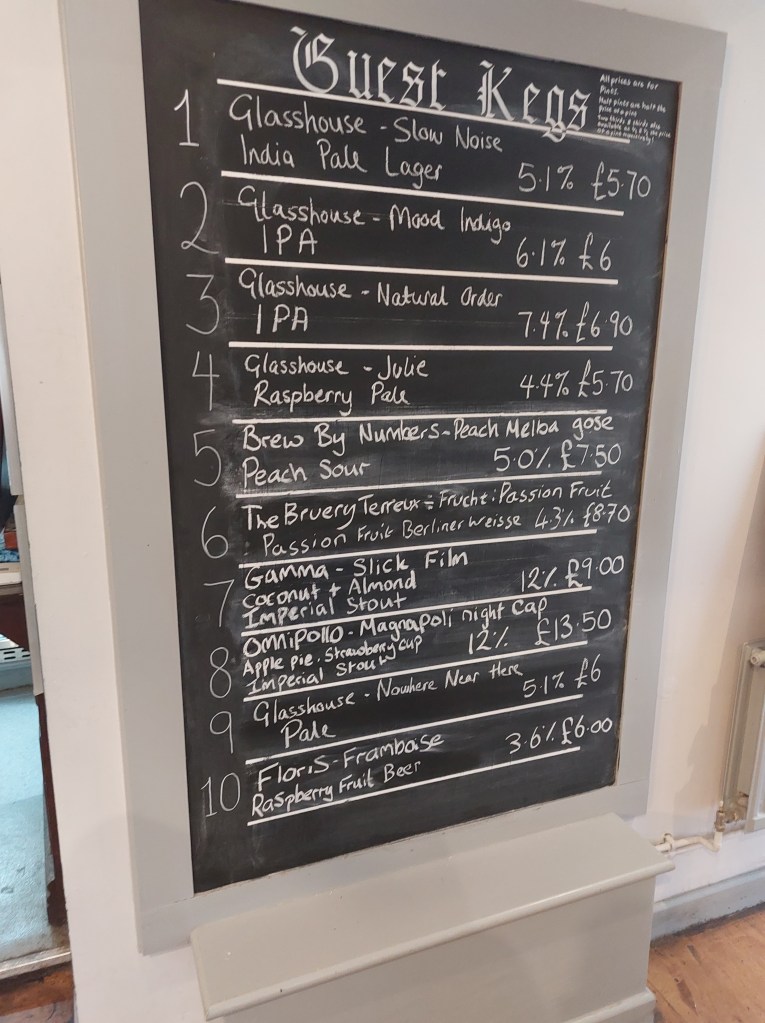 Guest Kegs
All prices are for
Pints.
Half pints are half the
price of a pint
Two thirds & thirds also
available at ⅔ & ⅓ the price
of a pint respectively!
1 Glasshouse - Slow Noise
India Pale Lager 5.1% £5.70
2 Glasshouse - Mood Indigo
IPA 6.1% £6
3 Glasshouse - Natural Order
IPA 7.4% £6.90
4 Glasshouse - Julie
Raspberry Pale 4.4% £5.70
5 Brew By Numbers - Peach Melba gose
Peach Sour 5.0% £7.50
6 The Bruery Terreux - Frucht: Passion Fruit
Passion Fruit Berliner Weisse 4.3% £8.70
7 Gamma - Slick Film
Coconut + Almond 12% £9.00
Imperial Stout
8 Omnipollo - Magnapoli night Cap
Apple pie. Strawberry cup 12% £13.50
Imperial Stout
9 Glasshouse - Nowhere Near Here
Pale 5.1% £6
10 Floris - Framboise
Raspberry Fruit Beer 3.6% £6.00